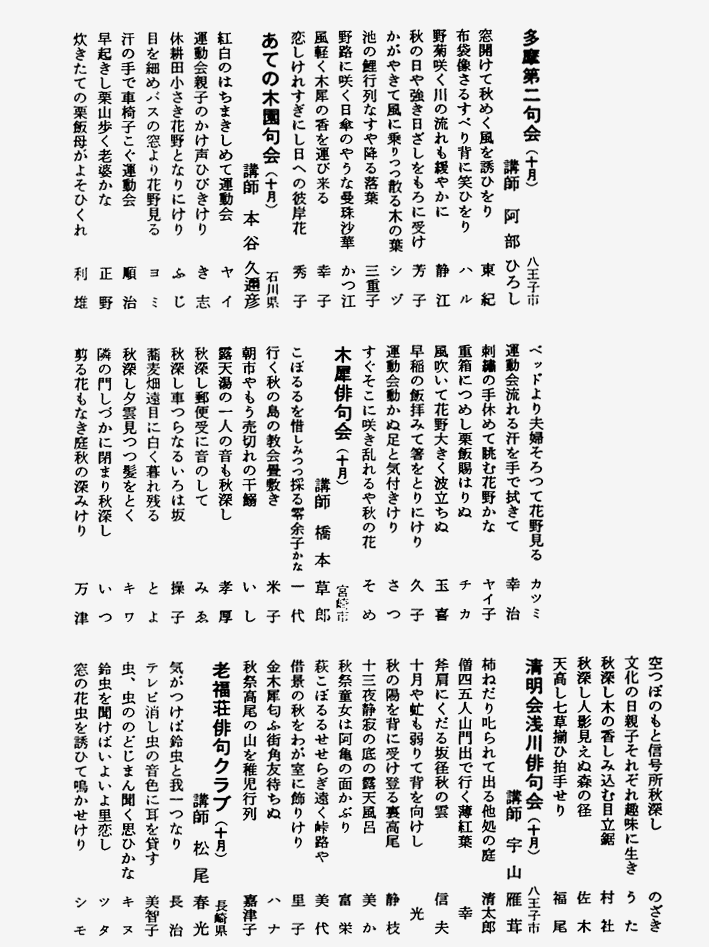 多摩第二句会(十月)
八王子市
講師 阿部 ひろし
窓開けて秋めく風を誘ひをり 東紀
布袋像さるすべり背に笑ひをり ハル
野菊咲く川の流れも緩やかに 静江
秋の日や強き日ざしをもろに受け 芳子
かがやきて風に乗りつつ散る木の葉 シヅ
池の鯉行列なすや降る落葉 三重子
野路に咲く日傘のやうな曼珠沙華 かつ江
風軽く木犀の香を運び来る 幸子
恋しけれすぎにし日への彼岸花 秀子
あての木園句会(十月)
石川県
講師 本谷 久邇彦
紅白のはちまきしめて運動会 ヤイ
運動会親子のかけ声ひびきけり き志
休耕田小さき花野となりにけり ふじ
目を細めバスの窓より花野見る ヨミ
汗の手で車椅子こぐ運動会 順治
早起きし栗山歩く老婆かな 正野
炊きたての栗飯母がよそひくれ 利雄
ベッドより夫婦そろつて花野見る カツミ
運動会流れる汗を手で拭きて 幸治
刺繡の手休めて眺む花野かな ヤイ子
重箱につめし栗飯賜はりぬ チカ
風吹いて花野大きく波立ちぬ 玉喜
早稲の飯拝みて箸をとりにけり 久子
運動会動かぬ足と気付きけり さつ
すぐそこに咲き乱れるや秋の花 そめ
木犀俳句会(十月)
宮崎市
講師 橋本 草郎
こぼるるを惜しみつつ採る零余子かな 一代
行く秋の島の教会畳敷き 米子
朝市やもう売切れの干鰯 いし
露天湯の一人の音も秋深し 孝厚
秋深し郵便受に音のして みゑ
秋深し車つらなるいろは坂 操子
蕎麦畑遠目に白く暮れ残る とよ
秋深し夕雲見つつ髪をとく キワ
隣の門しづかに閉まり秋深し いつ
剪る花もなき庭秋の深みけり 万津
空つぼのもと信号所秋深し のざき
文化の日親子それぞれ趣味に生き うた
秋深し木の香しみ込む目立鋸 村社
秋深し人影見えぬ森の径 佐木
天高し七草揃ひ拍手せり 福尾
清明会浅川俳句会(十月)
八王子市
講師 宇山 雁茸
柿ねだり叱られて出る他処の庭 清太郎
僧四五人山門出で行く薄紅葉 幸
斧肩にくだる坂径秋の雲 信夫
十月や虻も弱りて背を向けし 光
秋の陽を背に受け登る裏高尾 静枝
十三夜静寂の底の露天風呂 美か
秋祭童女は阿亀の面かぶり 富栄
萩こぼるるせせらぎ遠く峠路や 美代
借景の秋をわが室に飾りけり 里子
金木犀匂ふ街角友待ちぬ ハナ
秋祭高尾の山を稚児行列 嘉津子
老福荘俳句クラブ(十月)
長崎県
講師 松尾 春光
気がつけば鈴虫と我一つなり 長治
テレビ消し虫の音色に耳を貸す 美智子
虫、虫ののどじまん聞く思ひかな キヌ
鈴虫を聞けばいよいよ里恋し ツタ
窓の花虫を誘ひて鳴かせけり シモ